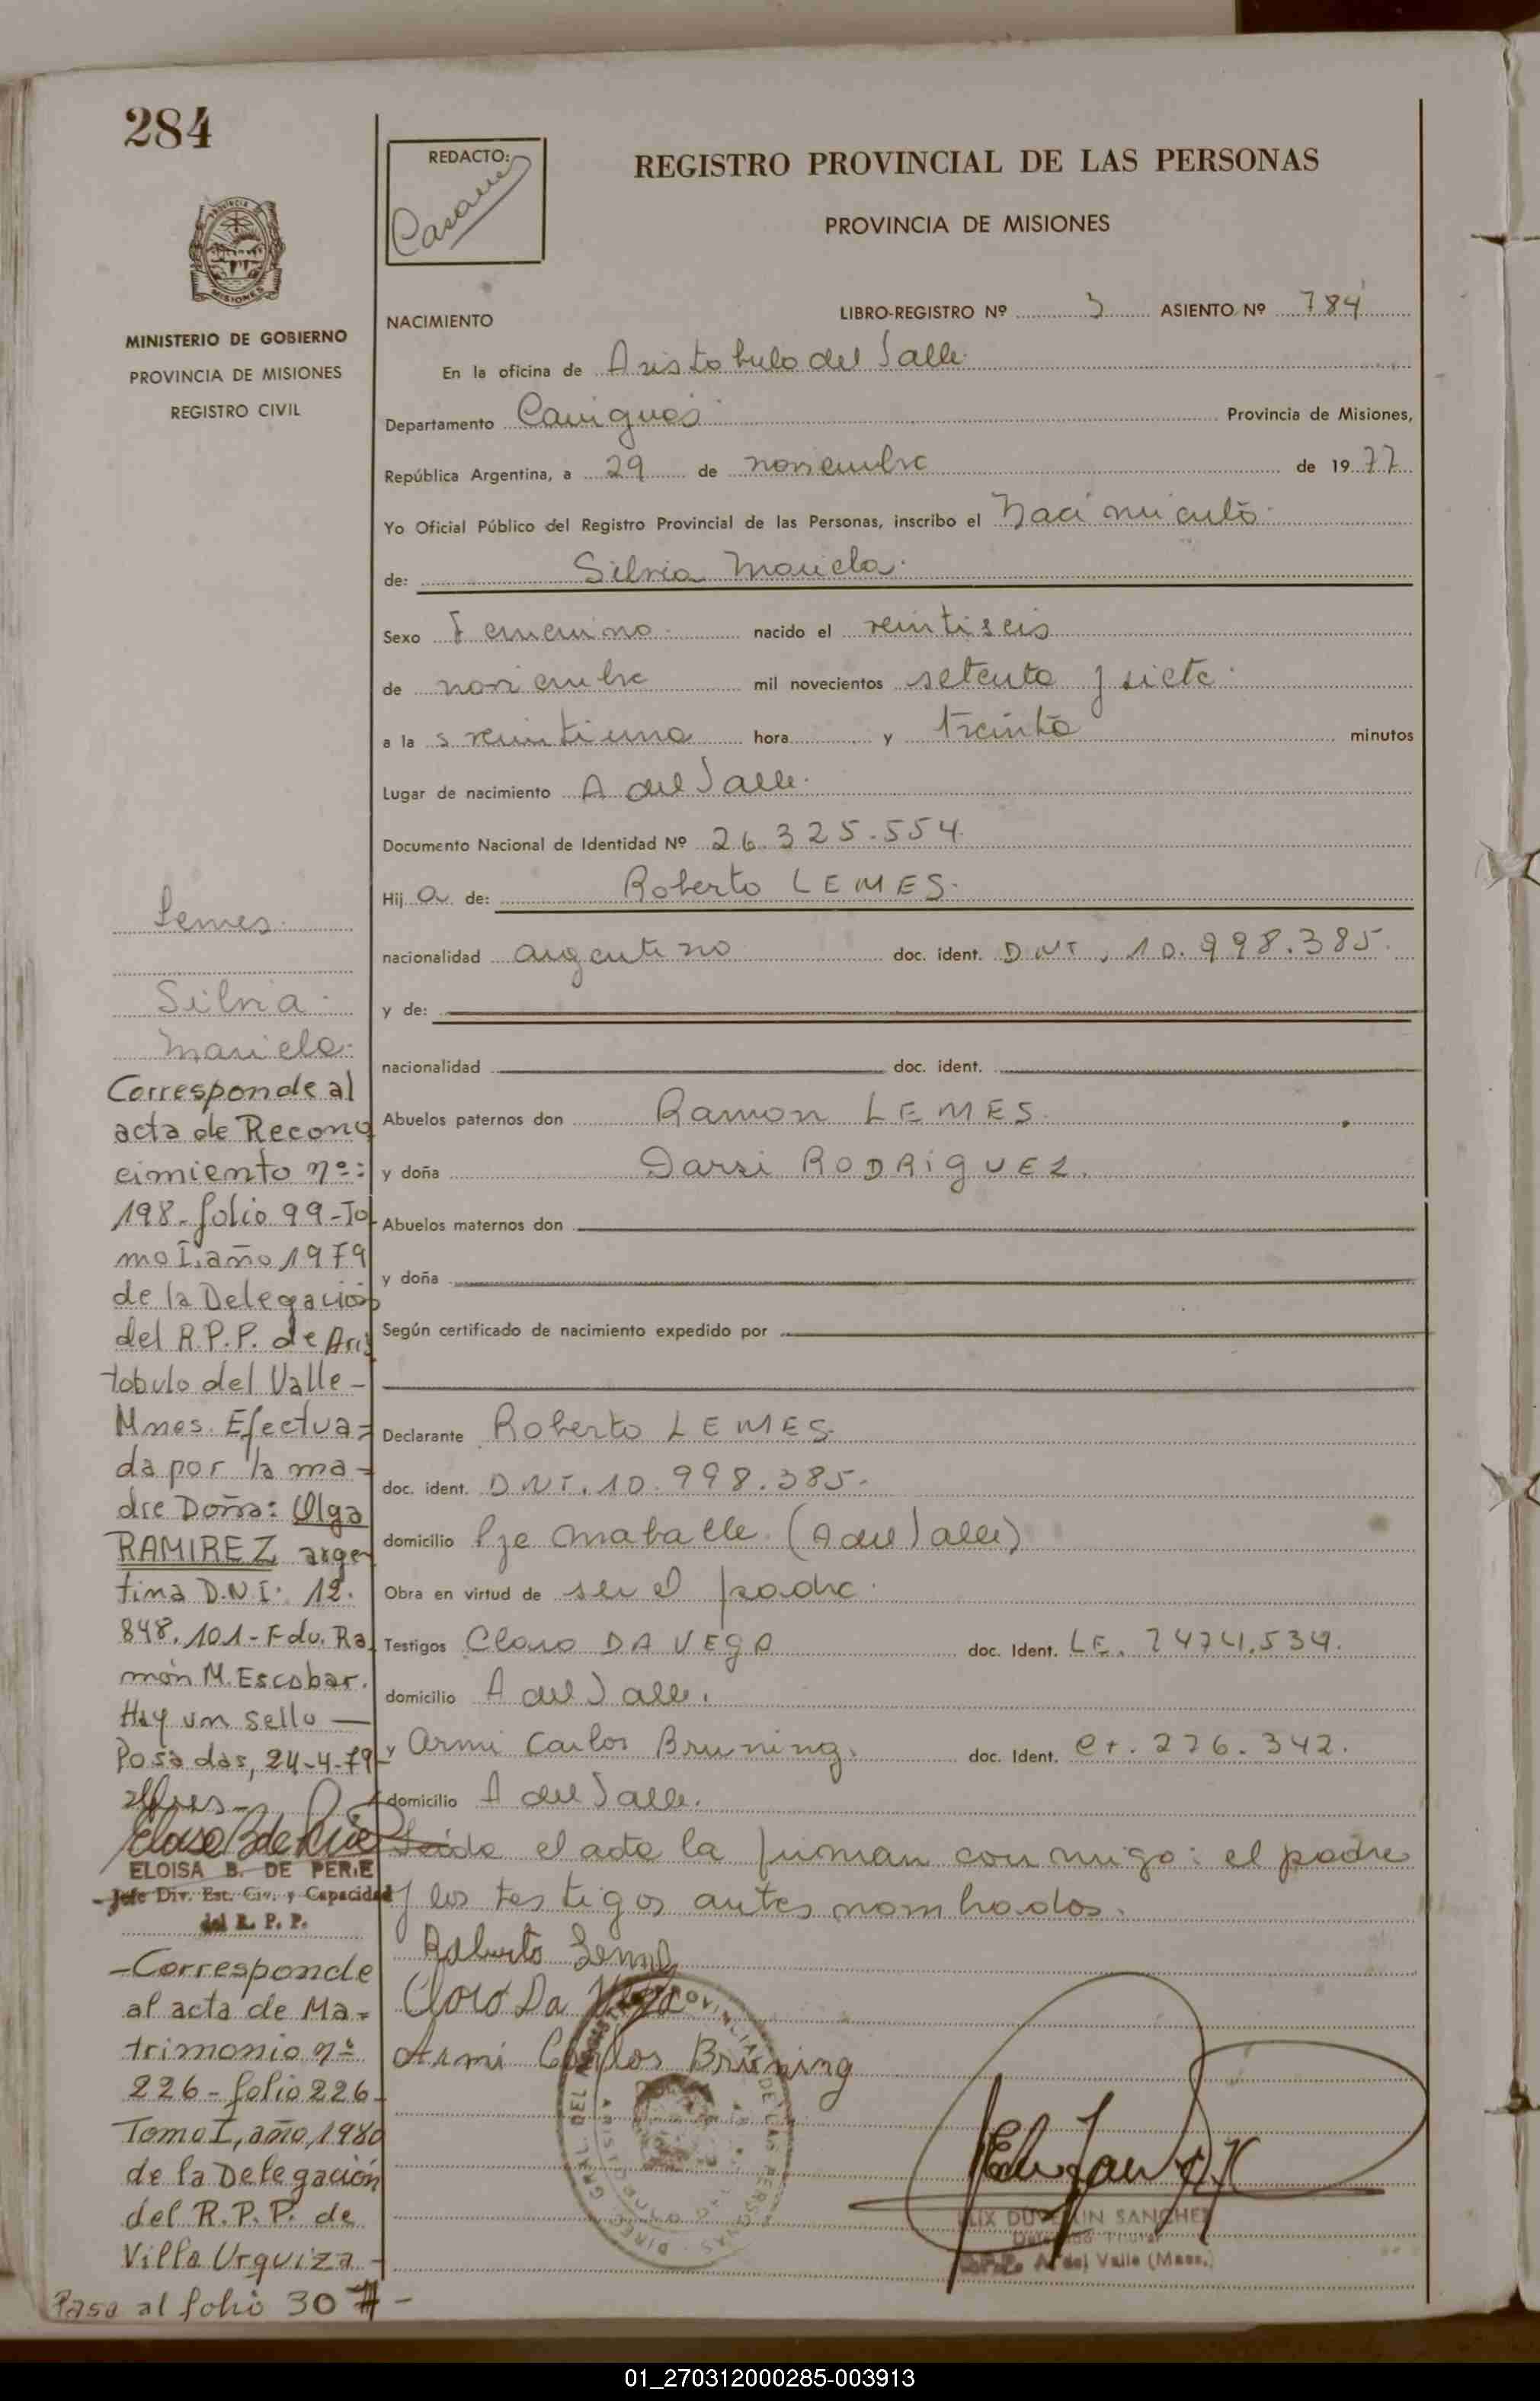 284
REDACTO:
REGISTRO PROVINCIAL DE LAS PERSONAS
PROVINCIA DE MISIONES
PROVINCIA
MISIONES
MINISTERIO DE GOBIERNO
PROVINCIA DE MISIONES
REGISTRO CIVIL
NACIMIENTO
LIBRO-REGISTRO Nº 3 ASIENTO Nº 784
En la oficina de Aristobulo del Valle
Departamento Cainguás Provincia de Misiones,
República Argentina, a 29 de noviembre de 1977
Yo Oficial Público del Registro Provincial de las Personas, inscribo el Nacimiento
de: Silvia Mariela
Sexo Femenino nacido el veintiseis
de noviembre mil novecientos setenta y siete
a la s veintiuna hora y treinta minutos
Lugar de nacimiento A del Valle
Documento Nacional de Identidad Nº 26.325.554
Hij a de: Roberto LEMES
nacionalidad argentino doc. ident. DNI, 10.998.385
y de:
nacionalidad doc. ident.
Abuelos paternos don Ramon LEMES
y doña Darsi RODRIGUEZ
Abuelos maternos don
y doña
Según certificado de nacimiento expedido por
Declarante Roberto LEMES
doc. ident. DNI. 10.998.385
domicilio Pje (A del Valle)
Obra en virtud de ser el padre
Testigos Claro DA VEGA doc. Ident. LE. 7474.534.
domicilio A del Valle.
y Armi Carlos Bruning. doc. Ident. 276.342.
domicilio A del Valle.
Leida el acta la firman con migo: el padre
y los testigos antes nombrados.
Roberto Lemes
Claro Da Vega
Armi Carlos Bruning
FELIX DUVERLIN SANCHEZ
Delegado Titular
R.P.P. A. del Valle (Mnes.)
Lemes
Silvia
Mariela
Corresponde al
acta de Recono
cimiento nº:
198- folio 99-To
mo I. año 1979
de la Delegación
del R.P.P. de Aris
tobulo del Valle-
Mnes. Efectua=
da por la ma-
dre Doña: Olga
RAMIREZ argen
tina D.N.I: 12.
848.101- Fdo. Ra
món M. Escobar.
Hay un sello —
Posadas, 24-4-79-
ELOISA B. DE PERIE
Jefe Div. Est. Civ. y Capacidad
del R. P. P.
-Corresponde
al acta de Ma=
trimonio nº
226- folio 226-
Tomo I, año, 1980
de la Delegación
del R.P.P. de
Villa Urquiza-
Pasa al folio 307-
01_270312000285-003913